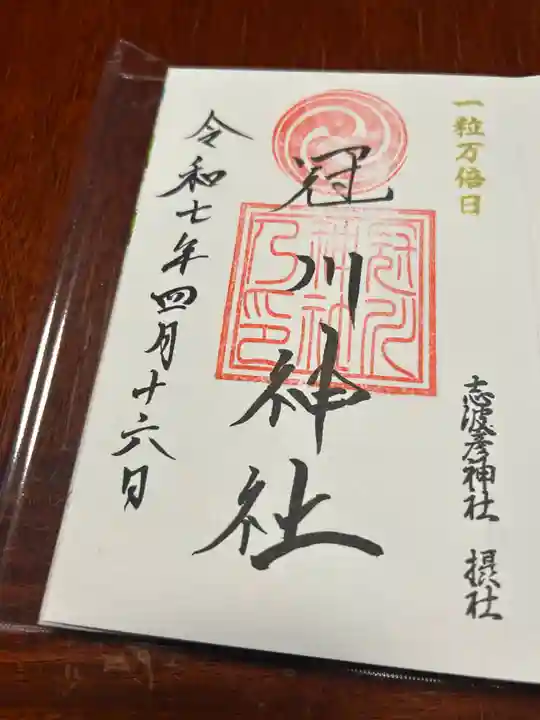 一粒万倍日
志波彦神社 摂社
冠川神社
冠川神社乃印
令和七年四月十六日